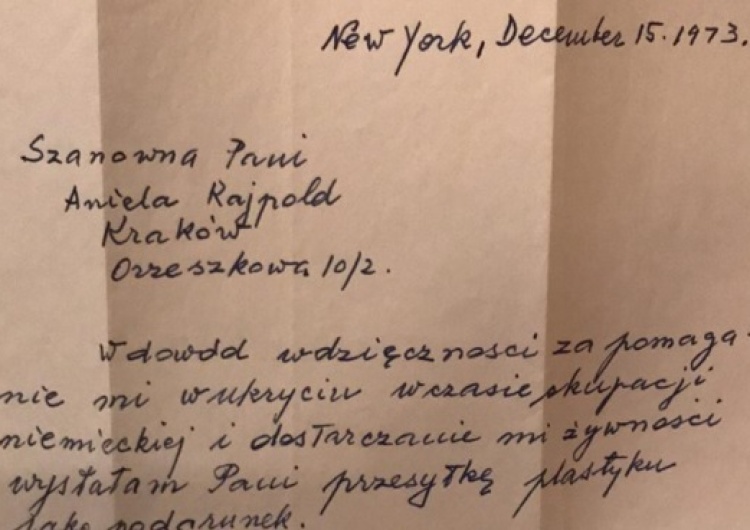 New York, December 15. 1973.
Szanowna Pani
Aniela Rajpold
Kraków
Orzeszkowa 10/2.
W dowód wdzięczności za pomaga-
nie mi w ukryciu w czasie okupacji
niemieckiej i dostarczanie mi żywności
wysłałam Pani przesyłkę plastyku
jako podarunek.